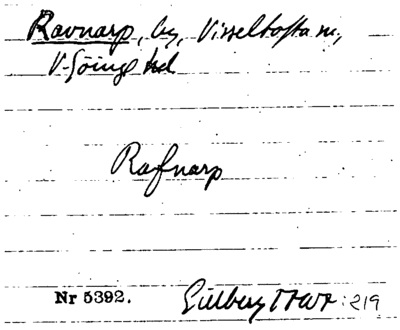 Ravnarp, by, Visseltofta sn,
V. Göinge hd
Rafnarp
Nr 5392. Gillberg : 219